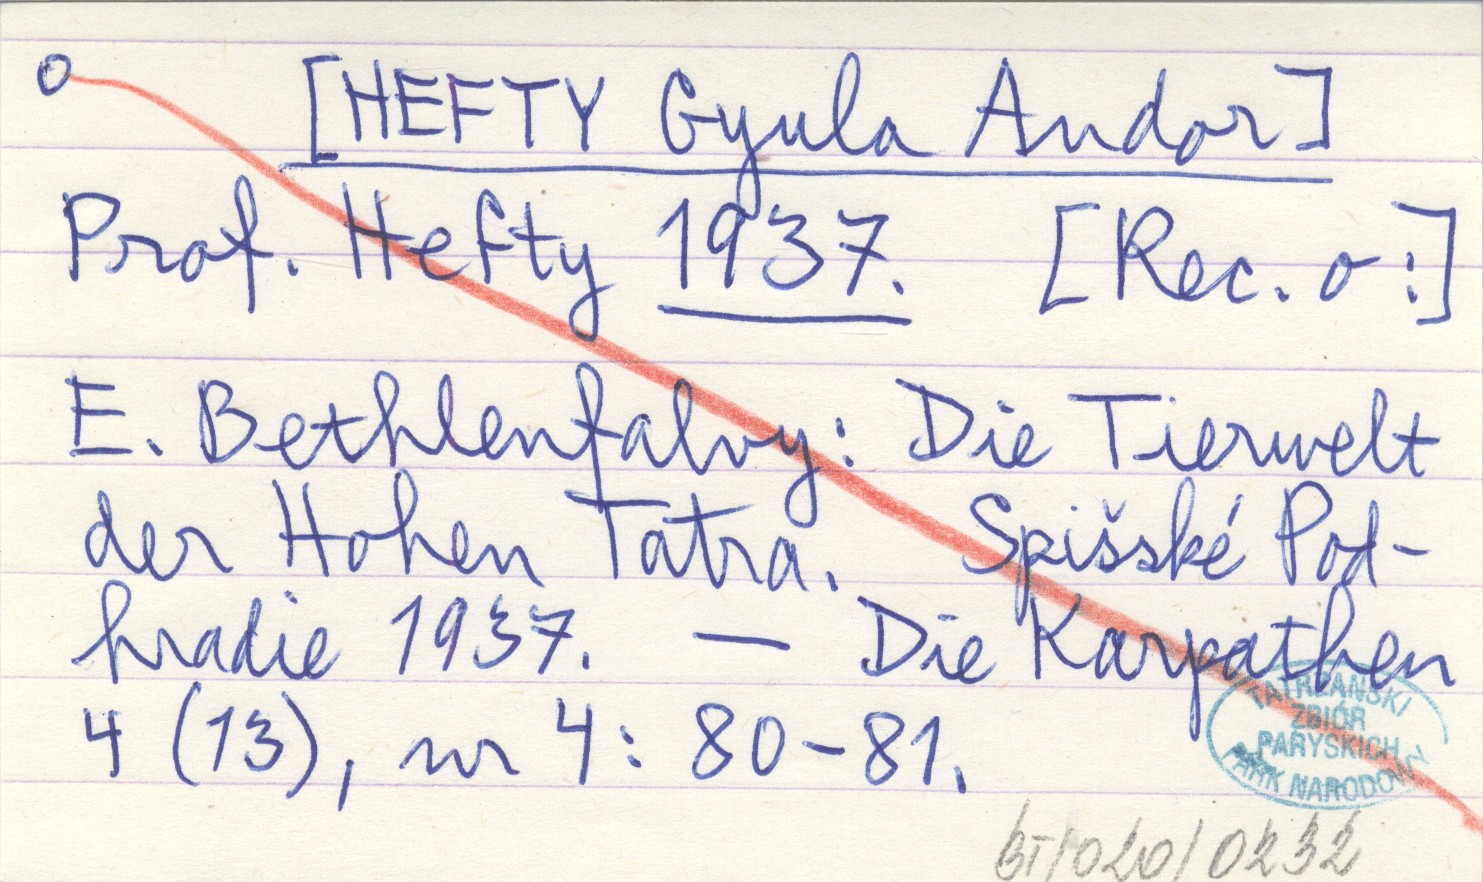 o [HEFTY Gyula Andor]
Prof. Hefty 1937. [Rec. o:]
E. Bethlenfalvy: Die Tierwelt
der Hohen Tatra. Spišské Pod-
hradie 1937. — Die Karpathen
4 (13), nr 4: 80-81.
TATRZAŃSKI
ZBIÓR
PARYSKICH
PARK NARODOWY
BT/020/0232